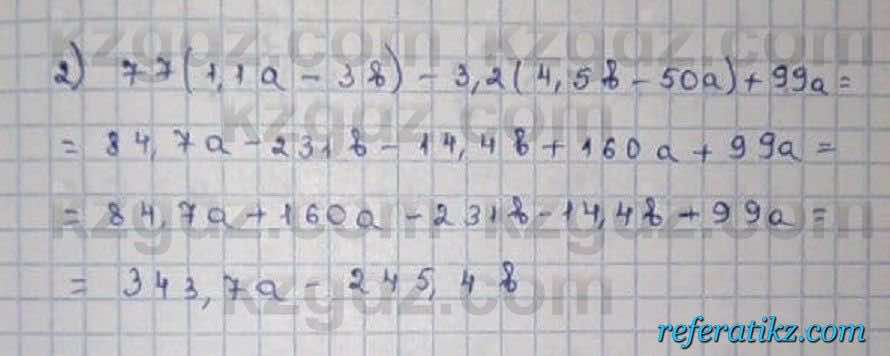 kzgdz.com
2) 77(1,1a - 3b) - 3,2(4,5b - 50a) + 99a =
kzgdz.com
= 84,7a - 231b - 14,4b + 160a + 99a =
= 84,7a + 160a - 231b - 14,4b + 99a =
kzgdz.com
= 343,7a - 245,4b
kzgdz.com
referatikz.com